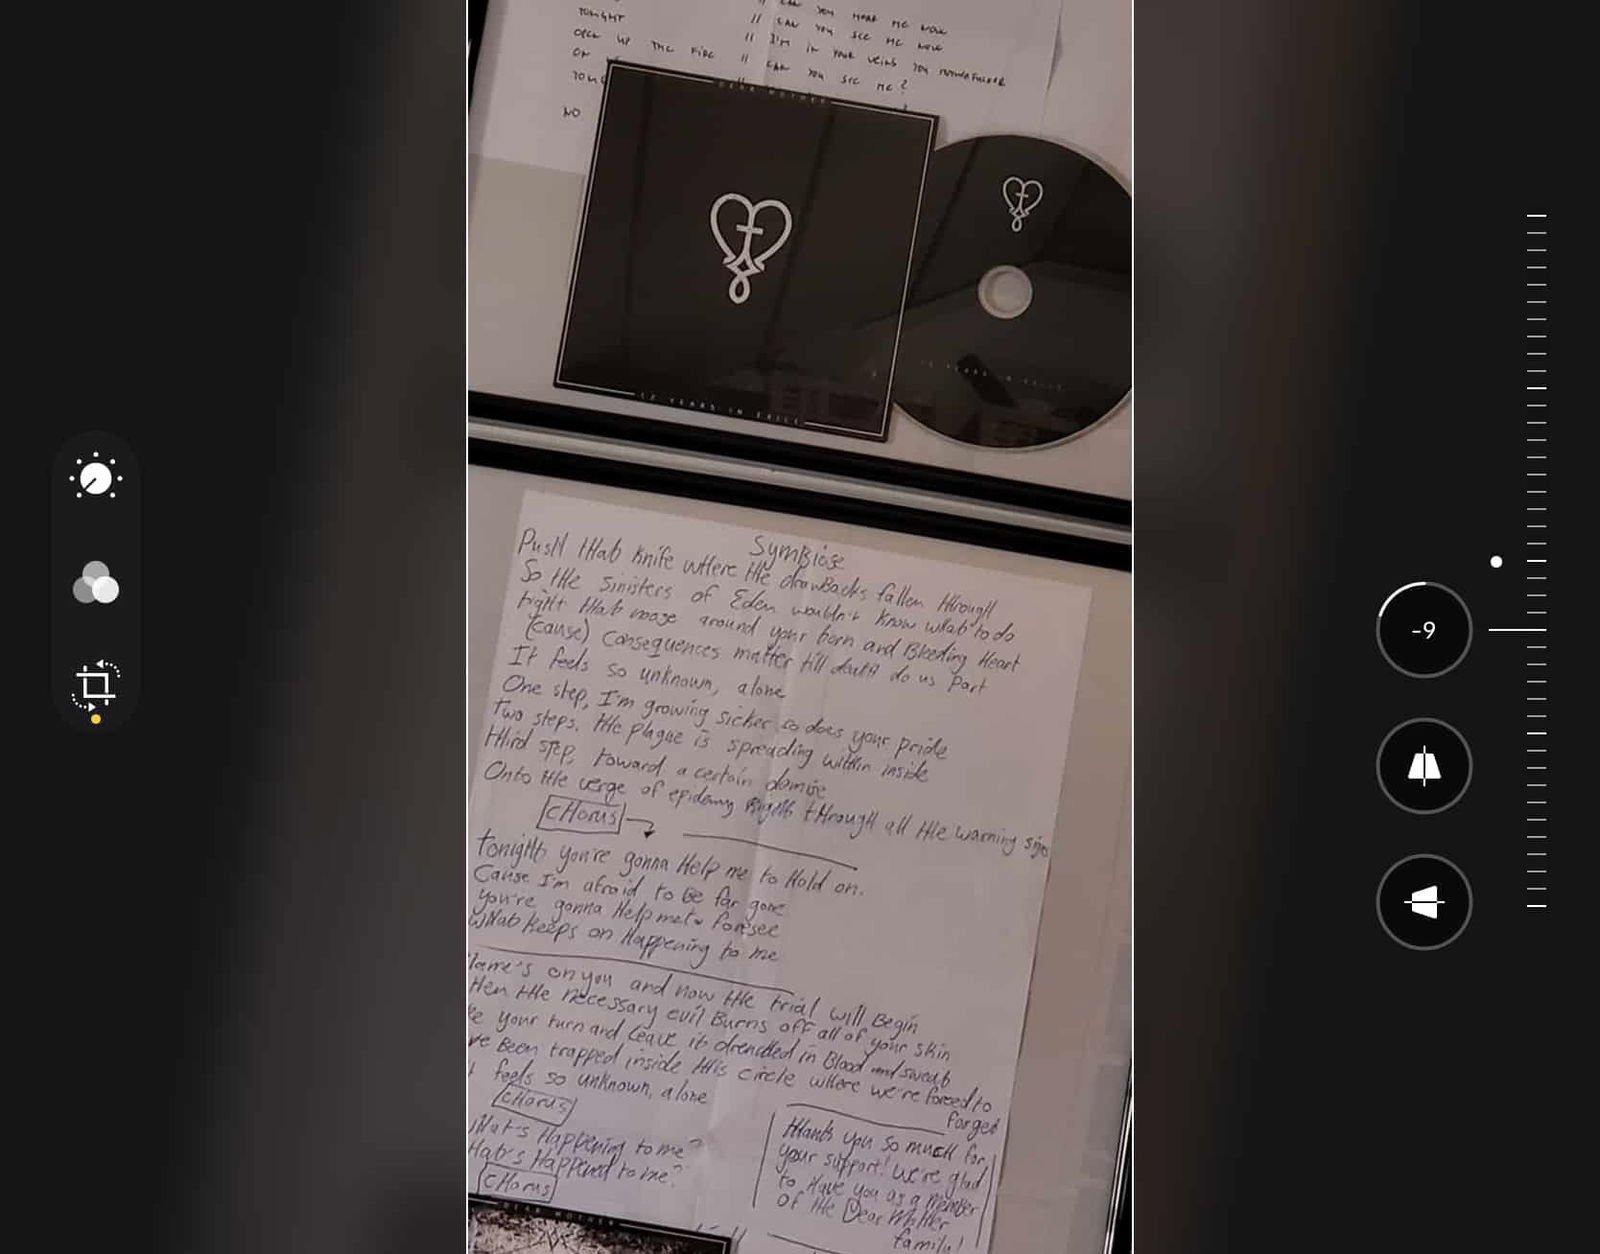 CAN YOU HEAR ME NOW
TONIGHT // CAN YOU SEE ME NOW
OPEN UP THE FIRE // I'M IN YOUR VEINS YOU MOTHERFUCKER
OR // CAN YOU SEE ME?
NO
DEAR MOTHER
12 YEARS IN EXILE
12 YEARS IN EXILE
Symbiose
Push that knife where the drawbacks fallen through
So the Sinisters of Eden wouldn't know what to do
tight that noose around your born and Bleeding Heart
(cause) Consequences matter till death do us part
It feels so unknown, alone
One step, I'm growing sicker so does your pride
Two steps. the plague is spreading within inside
third step, toward a certain demise
Onto the verge of epidemy right through all the warning signs
CHorus
tonight you're gonna Help me to Hold on.
Cause I'm afraid to Be far gone
you're gonna Help me to foresee
What keeps on Happening to me
on you and now the trial will Begin
the necessary evil Burns off all of your skin
your turn and leave it drenched in Blood and sweat
Been trapped inside this circle where we're forced to
forget
feels so unknown, alone
CHorus
What's Happening to me?
What's Happened to me?
CHorus
thank you so much for
your support! We're glad
to Have you as a member
of the Dear Mother
family!
DEAR MOTHER
-9